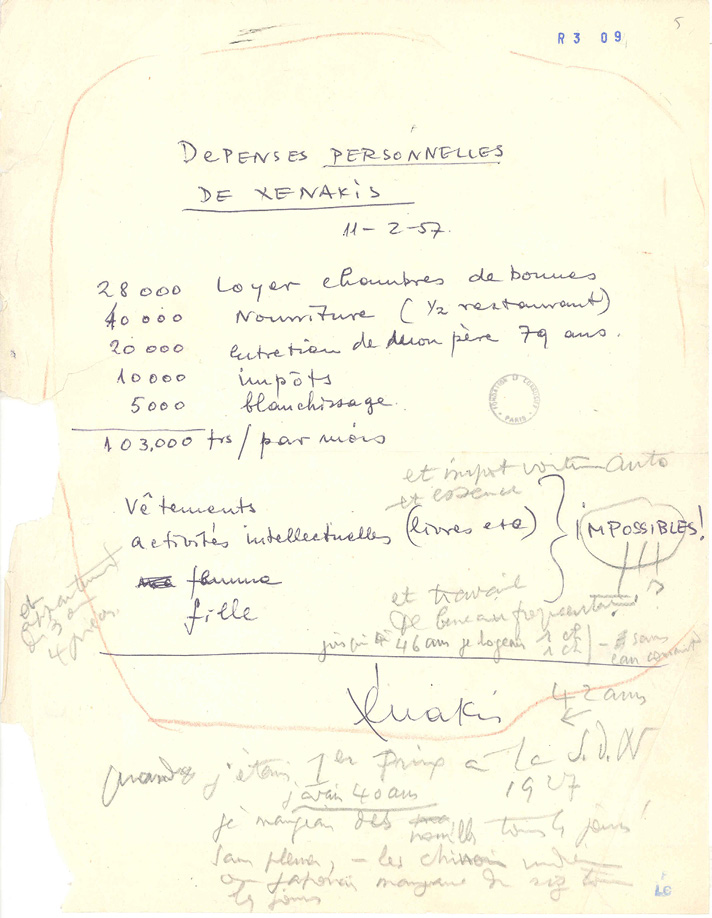 R3 09
5
DePENSES PERSONNELLES
DE XENAKIS
11-2-57.
28000 Loyer chambres de bonnes
40000 Nourriture (1/2 restaurant)
20000 entretien de mon père 79 ans.
10000 impôts
5000 blanchissage.
103,000 frs/par mois
FONDATION LE CORBUSIER PARIS
et impot voiture auto
et essence
Vêtements
activités intellectuelles (livres etc) } iMPOSSIBLES!
femme
fille
et appartement
de 3 à
4 pièces.
et travail
de bureau
jusqu'à 46 ans je logeais 1 ch - sans
1 ch eau courante
Xenakis
42 ans
Quand j'étais 1er Prix à la S.D.N
1927
j'avais 40 ans
je mangeais des nouilles tous les jours!
sans pleurer, - les chinois
japonais mangent du riz tous
les jours
LC